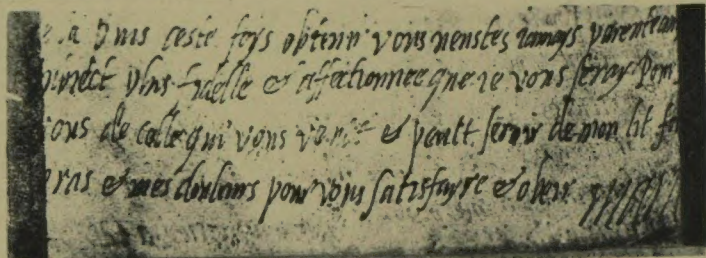 a vous ceste foys obtenir vous neustes iamays parente
plus fidelle & affectionnee que ie vous seray
vous de celle qui vous & peult servir de mon lit
bras & mes douleurs pour vous satisfayre & obeir